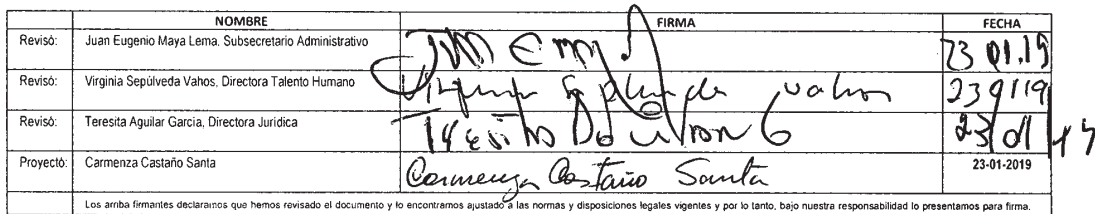 NOMBRE FIRMA FECHA
Revisó: Juan Eugenio Maya Lema. Subsecretario Administrativo 23 01.19
Revisó: Virginia Sepúlveda Vahos, Directora Talento Humano Virginia Sepulveda Vahos 23 01 19
Revisó: Teresita Aguilar Garcia, Directora Jurídica 23/01/
Proyectó: Carmenza Castaño Santa Carmenza Castaño Santa 23-01-2019
Los arriba firmantes declaramos que hemos revisado el documento y lo encontramos ajustado a las normas y disposiciones legales vigentes y por lo tanto, bajo nuestra responsabilidad lo presentamos para firma.